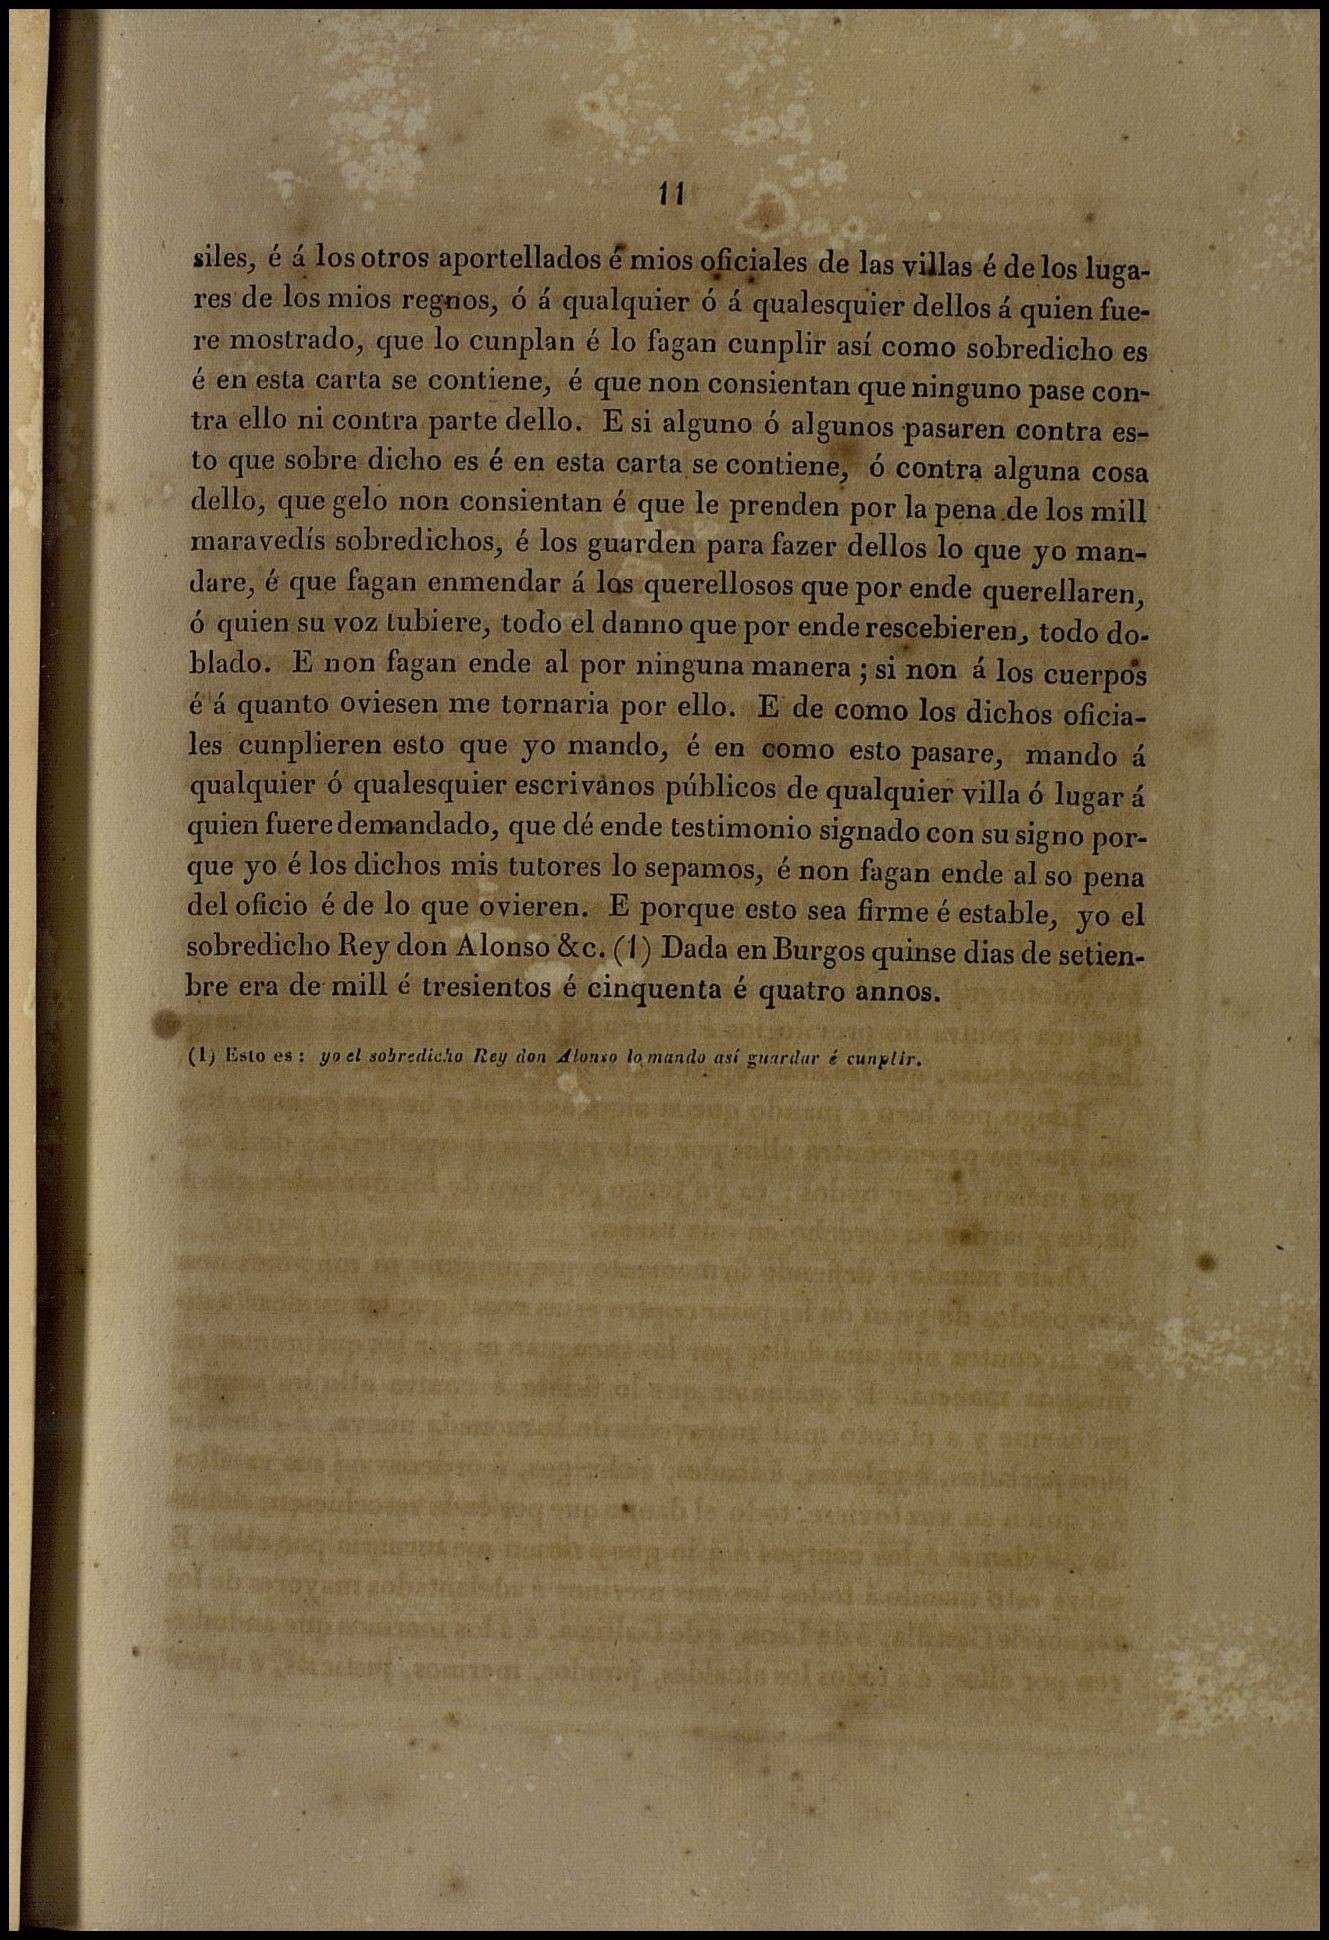 11
siles, é á los otros aportellados é mios oficiales de las villas é de los luga-
res de los mios regnos, ó á qualquier ó á qualesquier dellos á quien fue-
re mostrado, que lo cunplan é lo fagan cunplir así como sobredicho es
é en esta carta se contiene, é que non consientan que ninguno pase con-
tra ello ni contra parte dello. E si alguno ó algunos pasaren contra es-
to que sobre dicho es é en esta carta se contiene, ó contra alguna cosa
dello, que gelo non consientan é que le prenden por la pena de los mill
maravedís sobredichos, é los guarden para fazer dellos lo que yo man-
dare, é que fagan enmendar á los querellosos que por ende querellaren,
ó quien su voz tubiere, todo el danno que por ende rescebieren, todo do-
blado. E non fagan ende al por ninguna manera; si non á los cuerpos
é á quanto oviesen me tornaria por ello. E de como los dichos oficia-
les cunplieren esto que yo mando, é en como esto pasare, mando á
qualquier ó qualesquier escrivanos públicos de qualquier villa ó lugar á
quien fuere demandado, que dé ende testimonio signado con su signo por-
que yo é los dichos mis tutores lo sepamos, é non fagan ende al so pena
del oficio é de lo que ovieren. E porque esto sea firme é estable, yo el
sobredicho Rey don Alonso &c. (1) Dada en Burgos quinse dias de setien-
bre era de mill é tresientos é cinquenta é quatro annos.
(1) Esto es: yo el sobredicho Rey don Alonso lo mando así guardar é cunplir.